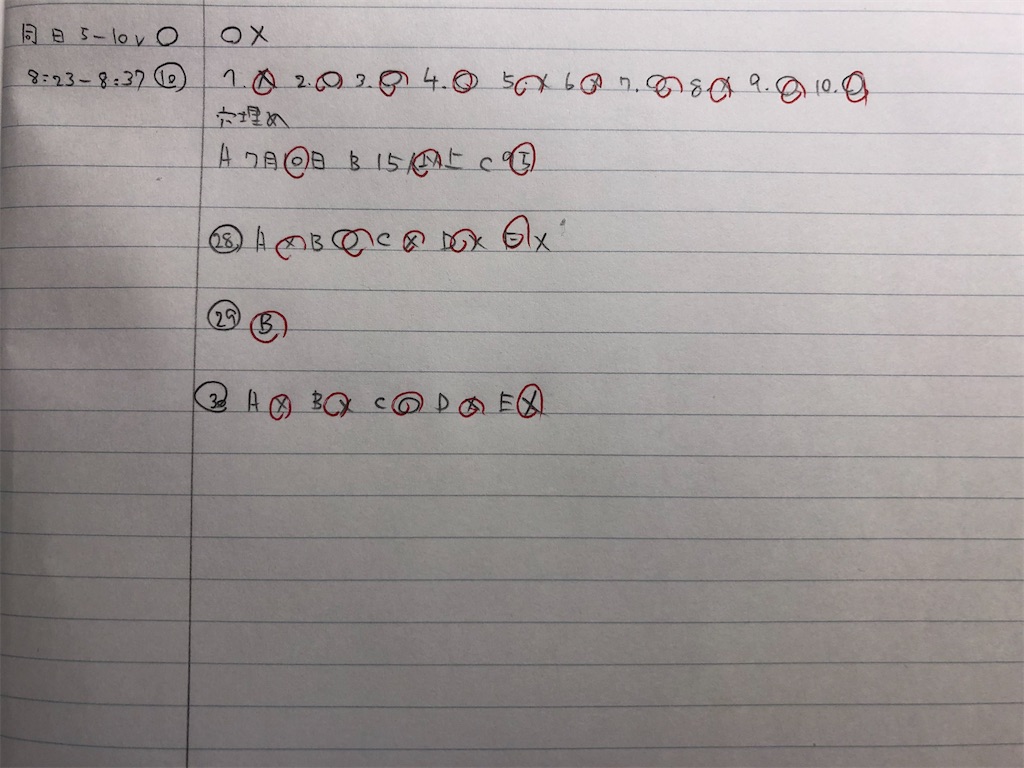 同日 5-10 ○ ○×
8:23-8:37 ⑫ 1.× 2.○ 3.○ 4.○ 5.× 6.× 7.○ 8.× 9.○ 10.○
穴埋め
A 7月○日 B 15人以上 C
㉘ A × B ○ C × D × E ×
㉙ B
㉚ A × B × C ○ D × E ×